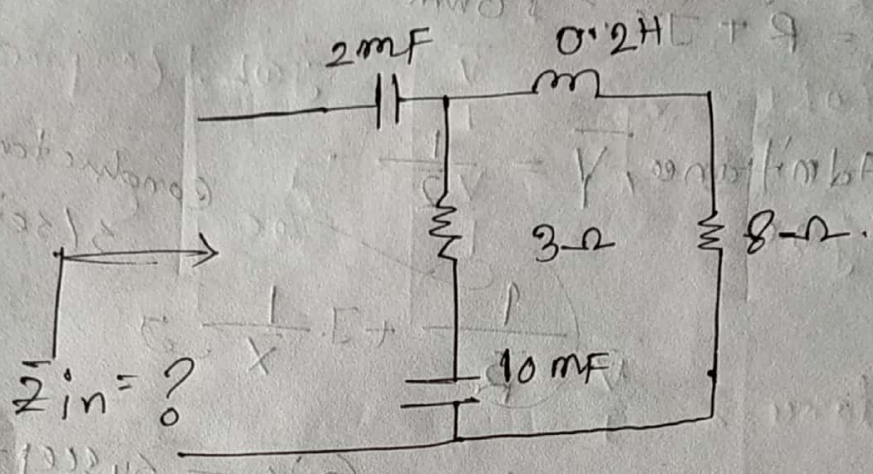 2mF
0.2H
3-Ω
8-Ω.
10 mF
Z̄in = ?